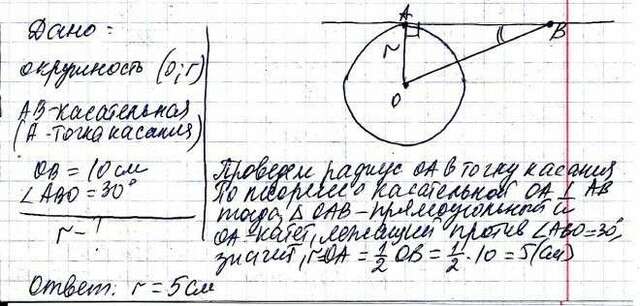 Дано:
окружность (О; r)
АВ-касательная
(А-точка касания)
ОВ = 10 см
∠АВО = 30°
r - ?
А
В
r
О
Проведем радиус ОА в точку касания
По теореме о касательной ОА ⊥ АВ
тогда △ ОАВ - прямоугольный и
ОА-катет, лежащий против ∠АВО=30°,
значит, r=ОА = 1/2 ОВ = 1/2 · 10 = 5 (см)
Ответ: r = 5 см